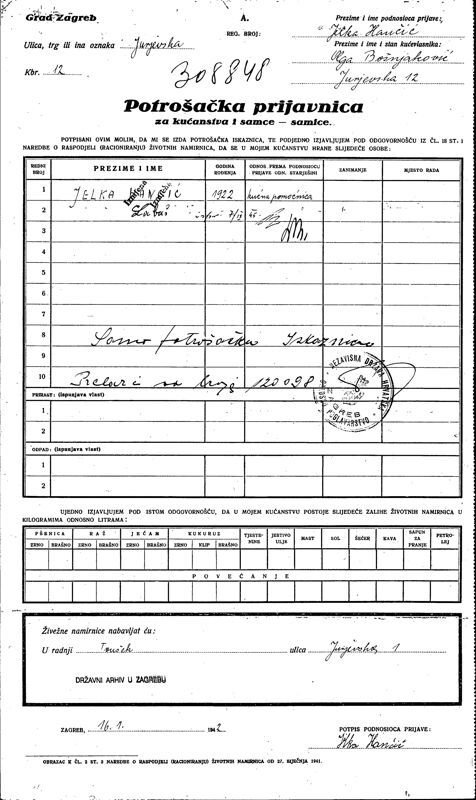 Grad Zagreb
A.
REG. BROJ:
Prezime i ime podnosioca prijave:
Jelka Hančić
Ulica, trg ili ina oznaka Jurjevska
Prezime i ime i stan kućevlasnika:
Olga Bošnjaković
Kbr. 12
308848
Jurjevska 12
Potrošačka prijavnica
za kućanstva i samce — samice.
POTPISANI OVIM MOLIM, DA MI SE IZDA POTROŠAČKA ISKAZNICA, TE PODJEDNO IZJAVLJUJEM POD ODGOVORNOŠĆU IZ ČL. 18 ST. 1
NAREDBE O RASPODJELI (RACIONIRANJU) ŽIVOTNIH NAMIRNICA, DA SE U MOJEM KUĆANSTVU HRANE SLIJEDEĆE OSOBE:
REDNI BROJ
PREZIME I IME
GODINA ROĐENJA
ODNOS PREMA PODNOSIOCU PRIJAVE ODN. STARJEŠINI
ZANIMANJE
MJESTO RADA
1 JELKA HANČIĆ 1922 kućna pomoćnica
2
3
4
5
6
7
8 Samo potrošačka Iskaznica
9
10 Prelazi na broj 120098
NEZAVISNA DRŽAVA HRVATSKA
ZAGREB
POGLAVARSTVO
PRIRAST: (ispunjava vlast)
1
2
OTPAD: (ispunjava vlast)
1
2
UJEDNO IZJAVLJUJEM POD ISTOM ODGOVORNOŠĆU, DA U MOJEM KUĆANSTVU POSTOJE SLIJEDEĆE ZALIHE ŽIVOTNIH NAMIRNICA U
KILOGRAMIMA ODNOSNO LITRAMA:
PŠENICA RAŽ JEČAM KUKURUZ TJESTENINE JESTIVO ULJE MAST SOL ŠEĆER KAVA SAPUN ZA PRANJE PETROLEJ
ZRNO BRAŠNO ZRNO BRAŠNO ZRNO BRAŠNO ZRNO KLIP BRAŠNO
POVEĆANJE
Živežne namirnice nabavljat ću:
U radnji ulica Jurjevska 1
DRŽAVNI ARHIV U ZAGREBU
ZAGREB, 16.1. 1942
POTPIS PODNOSIOCA PRIJAVE:
Jelka Hančić
OBRAZAC K ČL. 2 ST. 2 NAREDBE O RASPODJELI (RACIONIRANJU) ŽIVOTNIH NAMIRNICA OD 27. SIJEČNJA 1941.